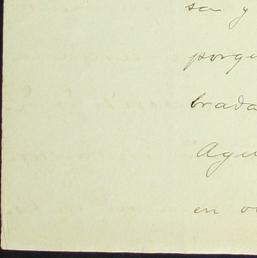 sa y
porqu
brada
Agu
en o